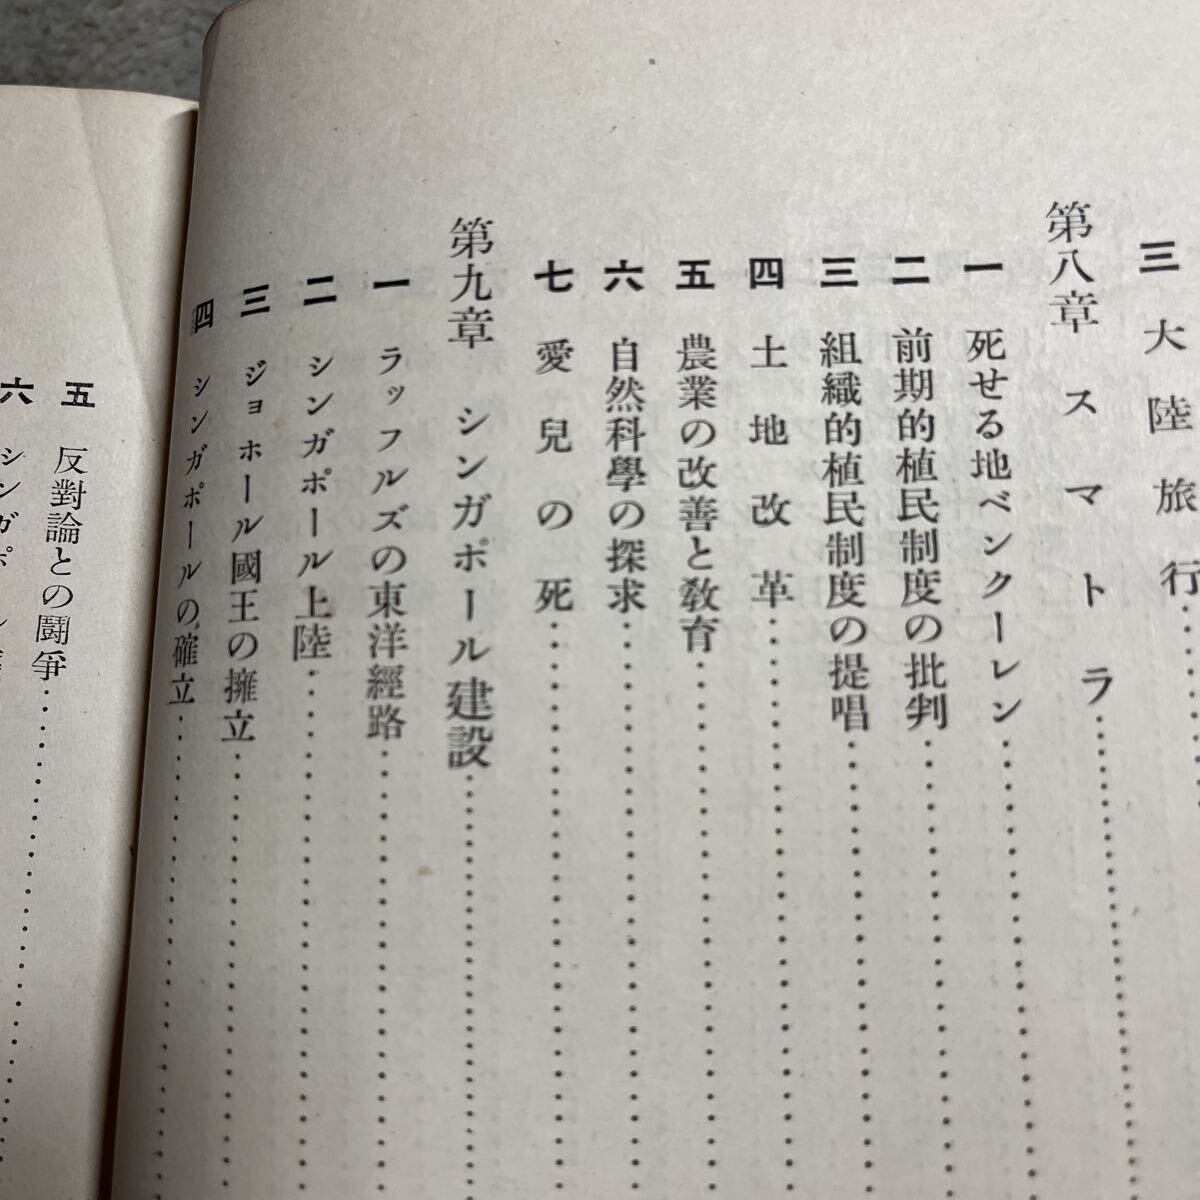 三 大陸旅行
第八章 スマトラ
一 死せる地ベンクーレン
二 前期的植民制度の批判
三 組織的植民制度の提唱
四 土地改革
五 農業の改善と教育
六 自然科學の探求
七 愛兒の死
第九章 シンガポール建設
一 ラッフルズの東洋經路
二 シンガポール上陸
三 ジョホール國王の擁立
四 シンガポールの確立
五 反對論との鬪爭
六 シンガポール